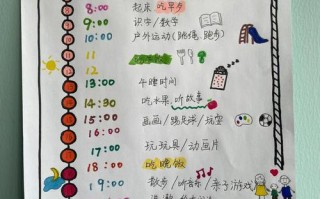 8:00 起来 吃早步
9:00 识字/数学
10:00 户外运动(跳绳、跑步)
11
12
13:00 午睡时间
14:30 吃水果、听故事
15:00 画画/踢足球/玩耍
17:00 玩玩具/动画片
18:00 吃晚饭
19:00 散步/听音乐/亲子游戏